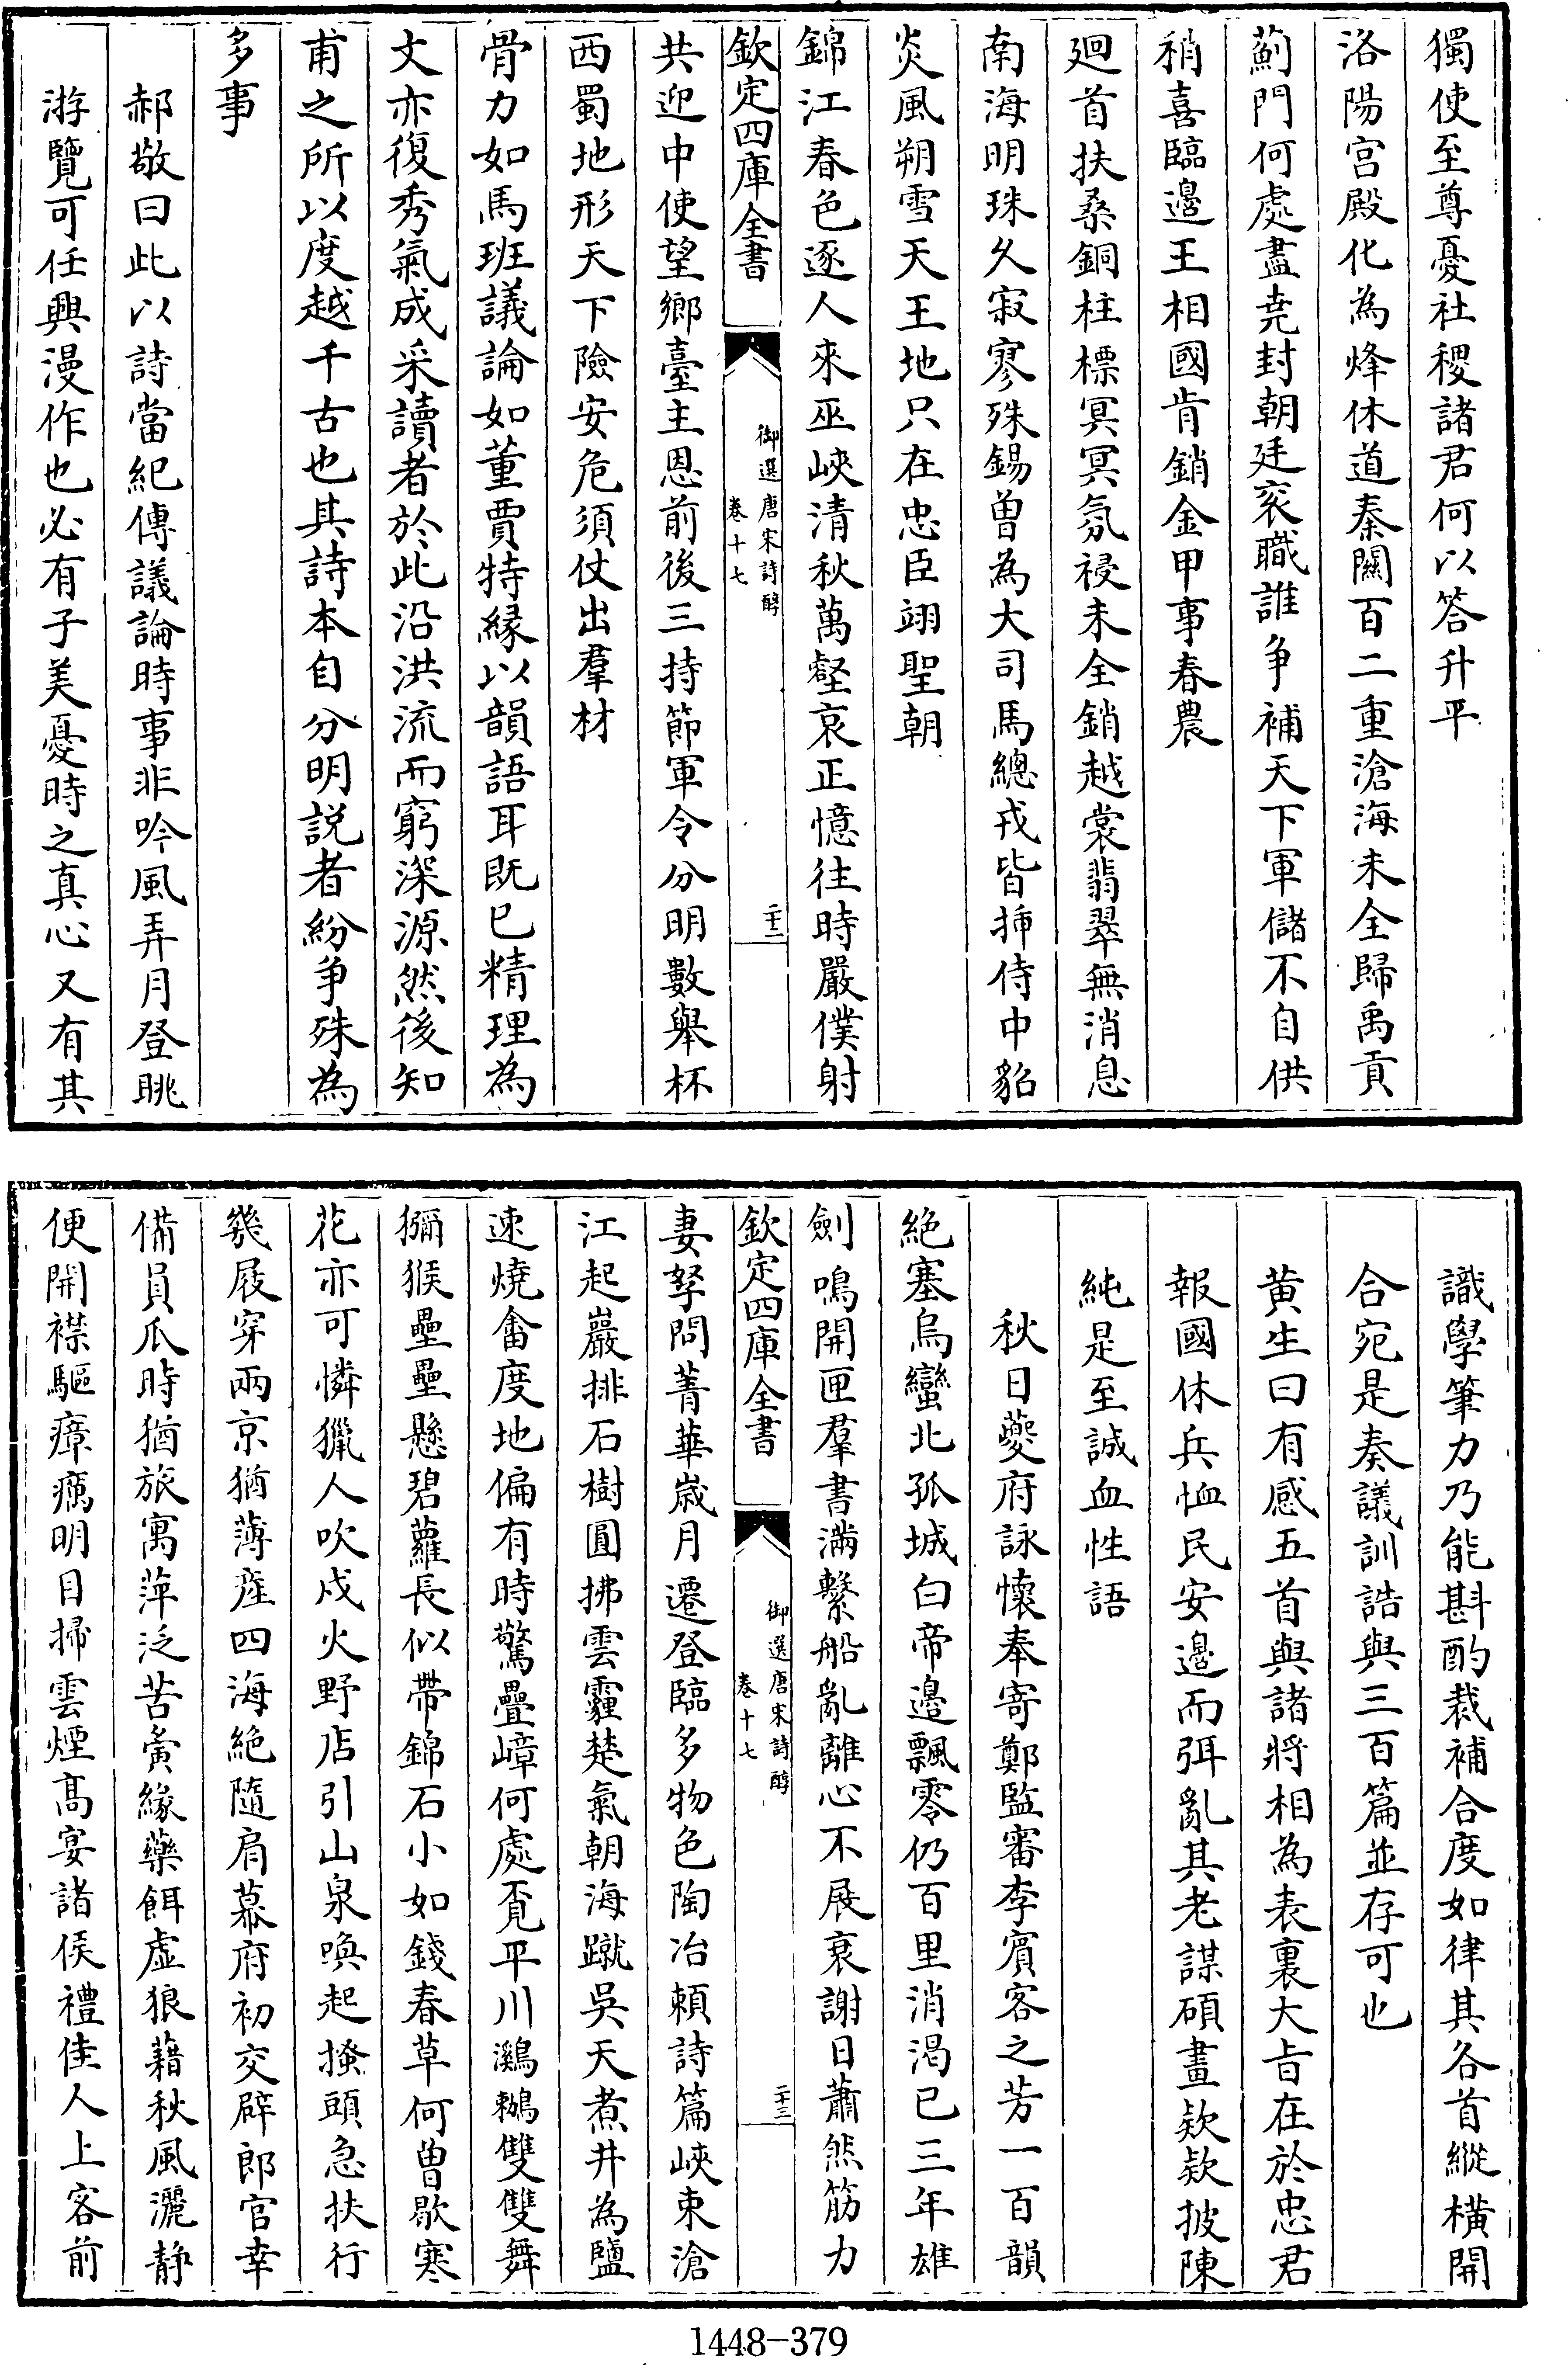 獨使至尊憂社稷諸君何以答升平
洛陽宫殿化為烽休道秦關百二重滄海未全歸禹貢
薊門何處盡堯封朝廷衮職誰争補天下軍儲不自供
稍喜臨邊王相國肯銷金甲事春農
廻首扶桑銅柱標冥冥氛祲未全銷越裳翡翠無消息
南海明珠久寂寥殊錫曽為大司馬總戎皆挿侍中貂
炎風朔雪天王地只在忠臣翊聖朝
錦江春色逐人來巫峽清秋萬壑哀正憶往時嚴僕射
欽定四庫全書
御選唐宋詩醇
卷十七
二十二
共迎中使望鄉臺主恩前後三持節軍令分明數舉杯
西蜀地形天下險安危須仗出羣材
骨力如馬班議論如董賈特緣以韻語耳既已精理為
文亦復秀氣成采讀者於此沿洪流而窮深源然後知
甫之所以度越千古也其詩本自分明説者紛争殊為
多事
郝敬曰此以詩當紀傳議論時事非吟風弄月登眺
游覽可任興漫作也必有子美憂時之真心又有其
識學筆力乃能斟酌裁補合度如律其各首縱横開
合宛是奏議訓誥與三百篇並存可也
黄生曰有感五首與諸將相為表裏大㫖在於忠君
報國休兵恤民安邊而弭亂其老謀碩畫欵欵披陳
純是至誠血性語
秋日夔府詠懐奉寄鄭監審李賓客之芳一百韻
絶塞烏蠻北孤城白帝邊飄零仍百里消渴已三年雄
劍鳴開匣羣書滿繫船亂離心不展衰謝日蕭然筋力
欽定四庫全書
御選唐宋詩醇
卷十七
二十三
妻孥問菁華嵗月遷登臨多物色陶冶賴詩篇峽束滄
江起巖排石樹圓拂雲霾楚氣朝海蹴吳天煮井為鹽
速燒畬度地偏有時驚疊嶂何處覔平川鸂鶒雙雙舞
獼猴壘壘懸碧蘿長似帶錦石小如錢春草何曽歇寒
花亦可憐獵人吹戍火野店引山泉喚起搔頭急扶行
幾屐穿兩京猶薄產四海絶隨肩幕府初交辟郎官幸
備員瓜時猶旅寓萍泛苦夤緣藥餌虚狼藉秋風灑静
便開襟驅瘴癘明目掃雲煙髙宴諸侯禮佳人上客前
1448-379